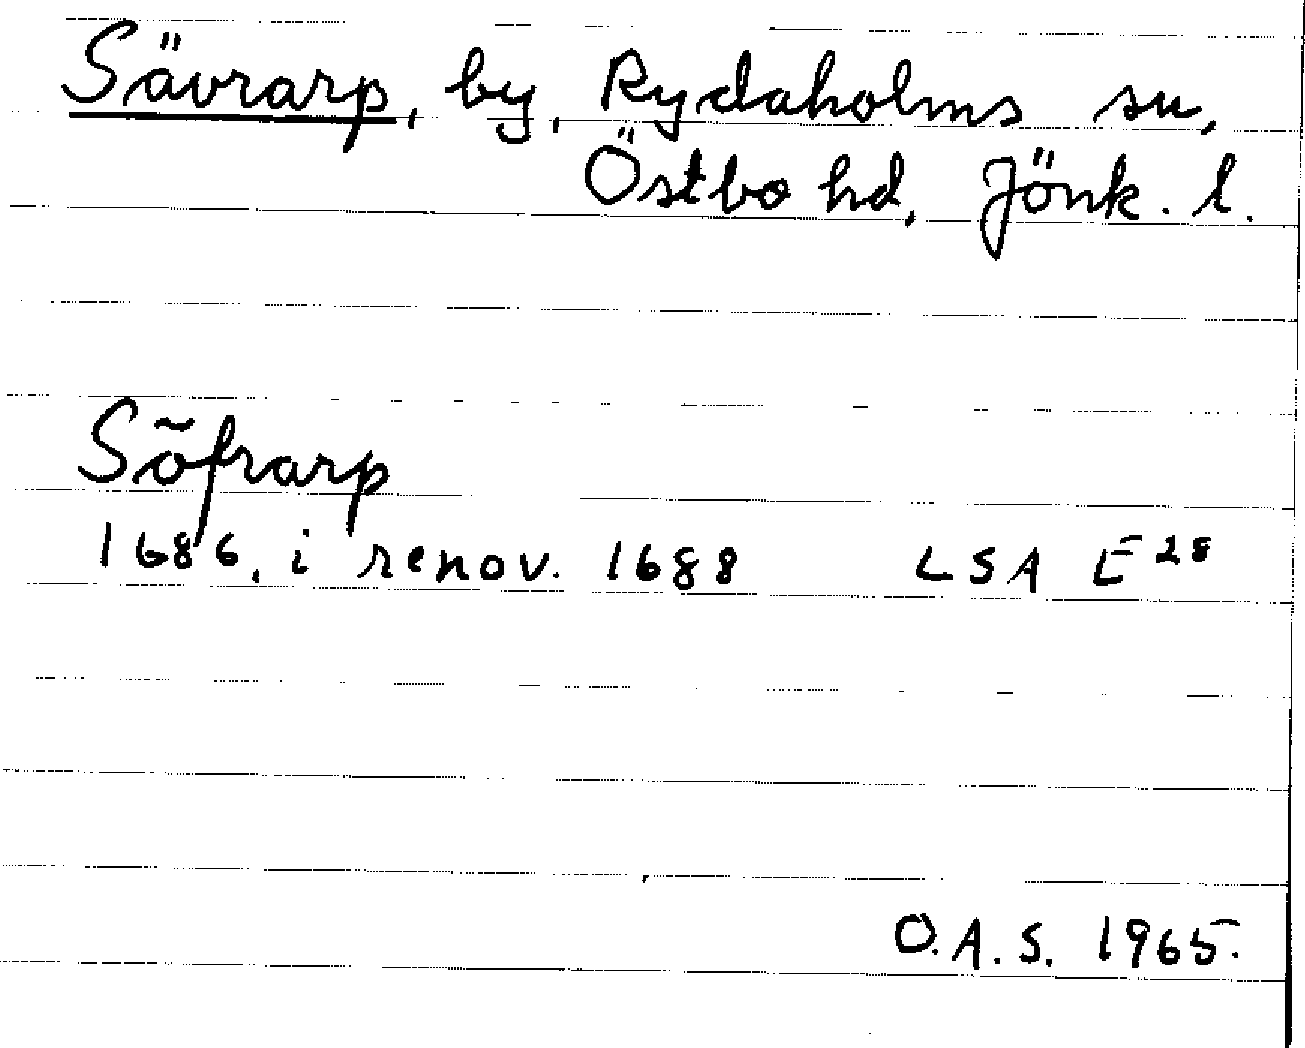 Sävrarp, by, Rydaholms sn,
Östbo hd, Jönk. l.
Sõfrarp
1686, i renov. 1688 LSA E²⁸
O.A.S. 1965.